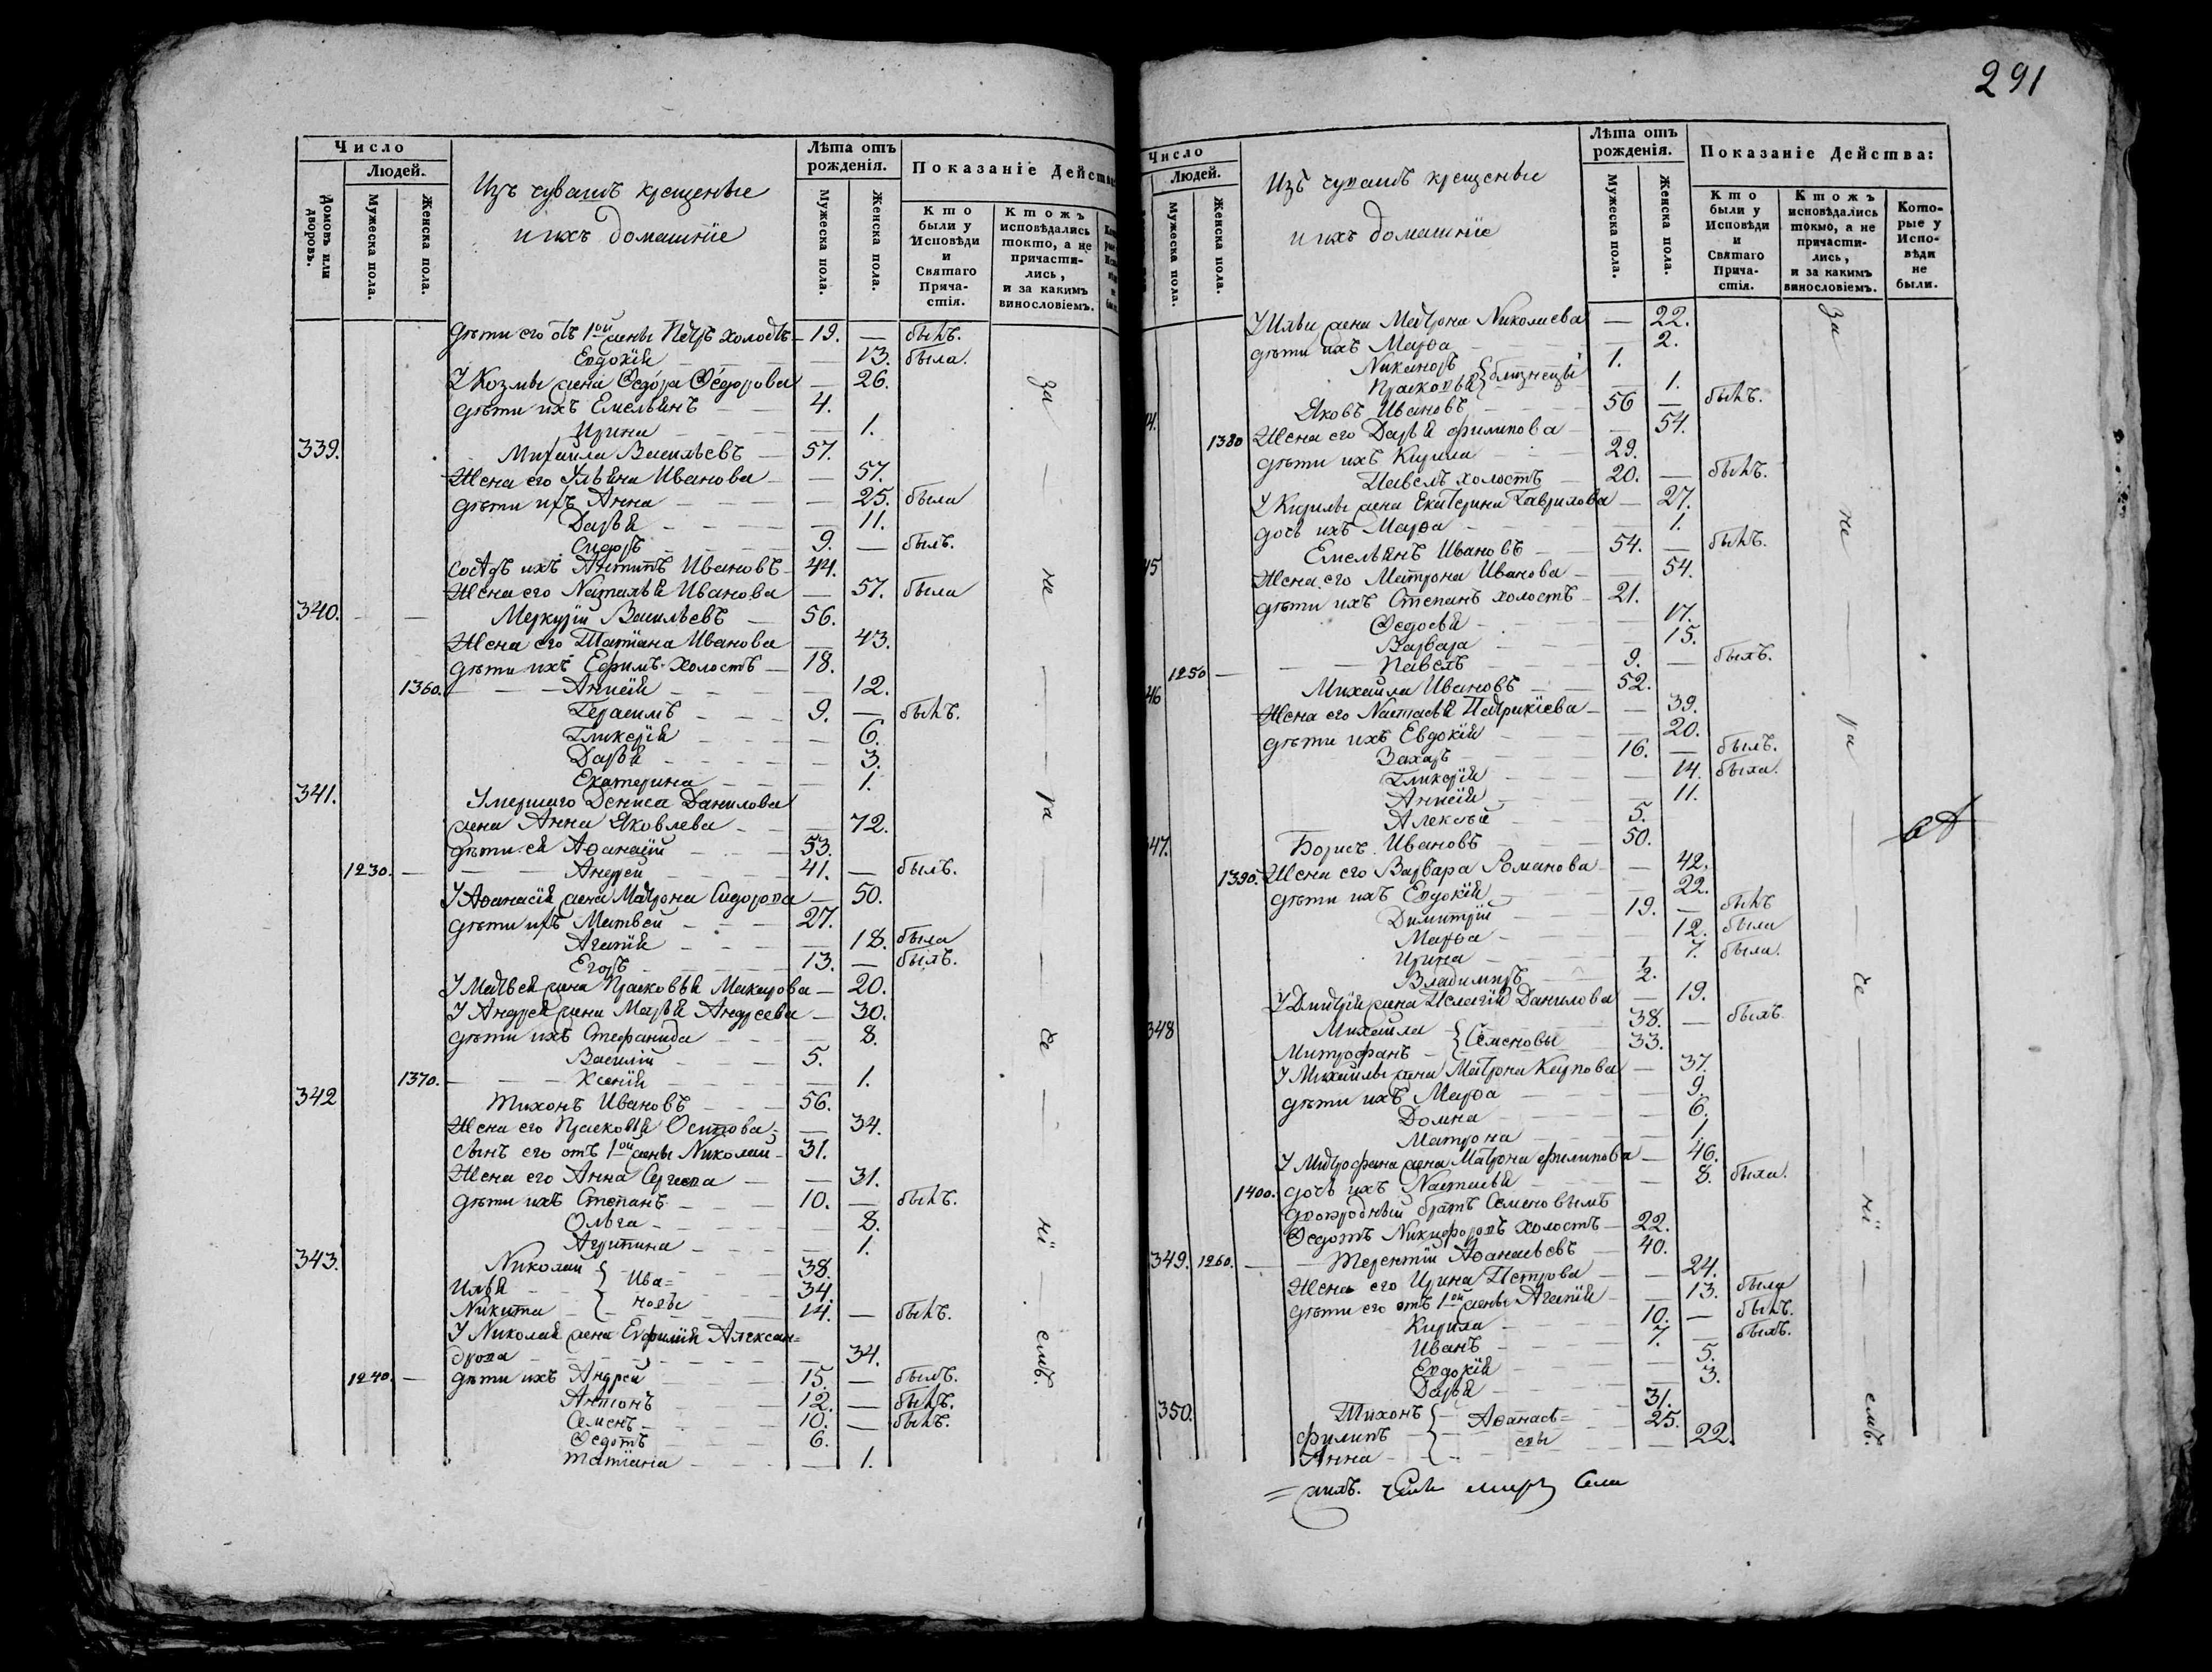 291
Число
Людей.
Домовъ или дворовъ.
Мужеска пола.
Женска пола.
Изъ чувашъ крещеные
и ихъ домашніе
Лѣта отъ рожденія.
Мужеска пола.
Женска пола.
Показаніе Дейст
Кто были у Исповѣди и Святаго Прича-стія.
Ктожъ исповѣдались токмо, а не причасти-лись, и за какимъ винословіемъ.
дѣти его отъ 1ой жены Петръ холостъ — 19. — былъ.
Евдокія — 13. была.
У Козмы жена Ѳедора Ѳедорова — 26.
дѣти ихъ Емельянъ — 4.
Ирина — 1.
339. Михайла Васильевъ — 57.
Жена его Ульяна Иванова — 57.
дѣти ихъ Анна — 25. была
Дарья — 11.
Сидоръ 9. — былъ.
Сосѣдъ ихъ Ивановъ — 44.
Жена его Наталья Иванова — 57. была
340. Меркурій Васильевъ — 56.
Жена его Татіана Иванова — 43.
дѣти ихъ Ефимъ холостъ — 18.
1360. — Аннсія — 12.
Герасимъ — 9. — былъ.
Гликерія — 6.
Дарья — 3.
Екатерина — 1.
341. Умершаго Дениса Данилова
жена Анна Яковлева — 72.
дѣти ея Аѳанасій — 53.
1230. — Андрей — 41. — былъ.
У Аѳанасія жена Матрона Сидорова — 50.
дѣти ихъ Матвей — 27.
Агапія — 18. была
Егоръ 13. — былъ.
У Матвея жена Прасковья Макарова — 20.
У Андрея жена Марья Андреева — 30.
дѣти ихъ Стефанида — 8.
Василій 5.
1370. — Ксенія — 1.
342 Тихонъ Ивановъ — 56.
Жена его Прасковья Осипова — 34.
сынъ его отъ 1ой жены Николай — 31.
Жена его Анна Сергеева — 31.
дѣти ихъ Степанъ — 10. — былъ.
Ольга — 8.
Агрипина — 1.
343. Николай 38.
Илья } Ива= 34.
Никита } новы 14. — былъ.
У Николая жена Евфимія Алексан=
дрова — 34.
1240. — дѣти ихъ Андрей 15. — былъ.
Антонъ 12. — былъ.
Семенъ 10. — былъ.
Ѳедотъ 6.
Татіана — 1.
за — не — ра — че — ні — емъ.
Число
Людей.
Мужеска пола.
Женска пола.
Изъ чувашъ крещеные
и ихъ домашніе
Лѣта отъ рожденія.
Мужеска пола.
Женска пола.
Показаніе Действа:
Кто были у Исповѣди и Святаго Прича-стія.
Ктожъ исповѣдались токмо, а не причасти-лись, и за какимъ винословіемъ.
Кото-рые у Испо-вѣди не были.
У Ильи жена Матрона Николаева — 22.
дѣти ихъ Марѳа — 2.
Никаноръ } близнецы 1.
Прасковья — 1.
Яковъ Ивановъ 56 — былъ.
1380 Жена его Дарья Филипова — 54.
дѣти ихъ Кирила 29.
Павелъ холостъ 20. — былъ.
У Кирилы жена Екатерина Гаврилова — 27.
дочь ихъ Марѳа — 1.
45 Емельянъ Ивановъ 54. — былъ.
Жена его Матрона Иванова — 54.
дѣти ихъ Степанъ холостъ — 21.
Ѳедосья — 17.
Варвара — 15.
1250 — Павелъ 9. — былъ.
46 Михайла Ивановъ 52.
Жена его Настасья Патрикіева — 39.
дѣти ихъ Евдокія — 20.
Захаръ 16. — былъ.
Гликерія — 14. была.
Аннсія — 11.
Алексѣй 5.
47. Борисъ Ивановъ 50.
1390. Жена его Варвара Романова — 42.
дѣти ихъ Евдокія — 22.
Димитрій 19. — былъ
Марѳа — 12. была
Ирина — 7. была.
Владимиръ 1/2.
У Димитрія жена Пелагія Данилова — 19.
348 Михайла } Семеновы 38. — былъ.
Митрофанъ 33.
У Михайлы жена Матрона Карпова — 37.
дѣти ихъ Марѳа — 9.
Домна — 6.
Матрона — 1.
У Митрофана жена Матрона Филипова — 46.
1400. дочь ихъ Настасья — 8. была.
двоюродный братъ Семеновымъ
Ѳедотъ Никифоровъ холостъ — 22.
349. 1260. — Терентій Аѳанасьевъ — 40.
Жена его Ирина Петрова — 24.
дѣти его отъ 1ой жены Агапія — 13. была
Кирила 10. — былъ.
Иванъ 7. — былъ.
Евдокія — 5.
Дарья — 3.
350. Тихонъ } 31.
Филипъ } Аѳанась= 25.
Анна } евы — 22.
за — не — ра — че — ні — емъ.